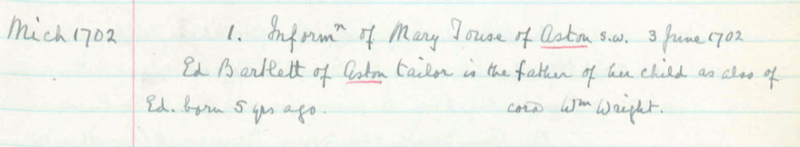 Mich 1702 1. Informⁿ of Mary Touse of Aston s.w. 3 June 1702
Ed Bartlett of Aston tailor is the father of her child as also of
Ed. born 5 yrs ago. cora Wᵐ Wright.